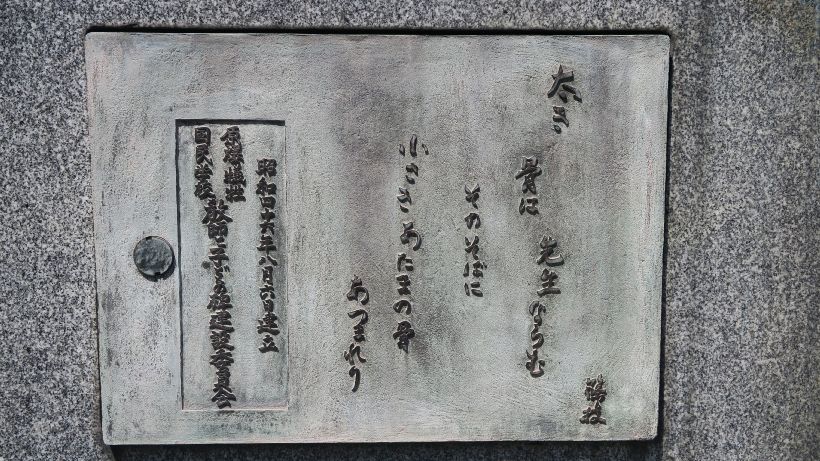 篠枝
太き
骨は 先生ならむ
そのそばに
小さきあたまの骨
あつまれり
昭和四十六年八月六日建立
原爆犠牲
国民学校 教師と子どもの碑建設委員会